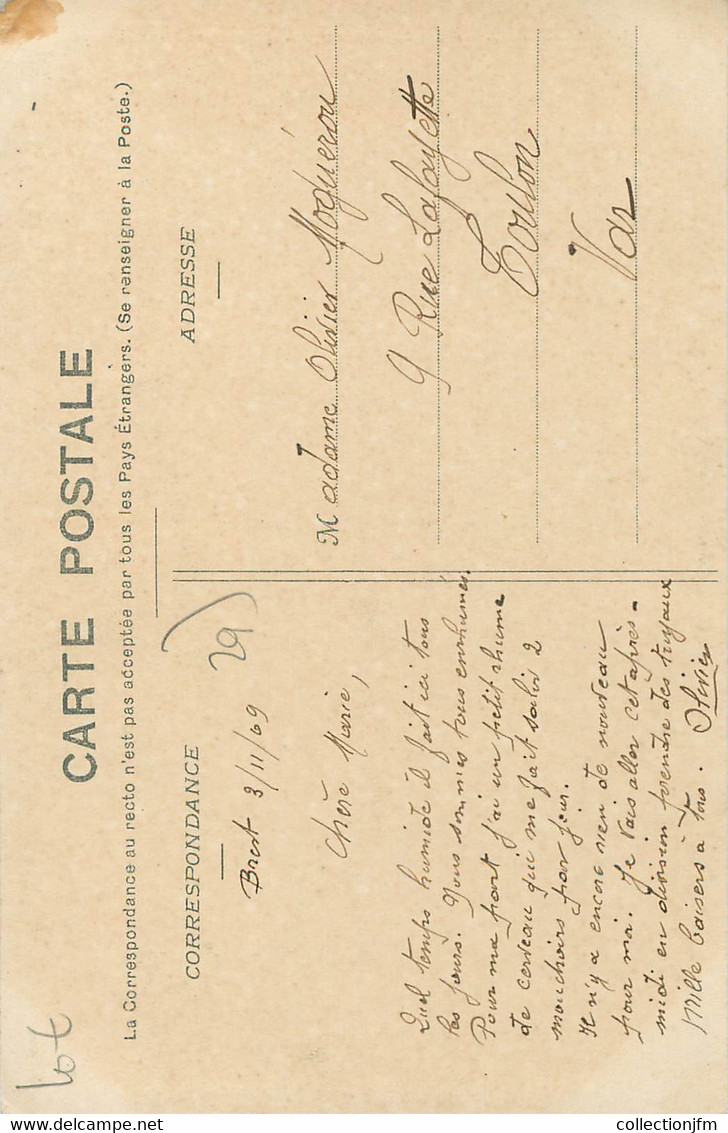 CARTE POSTALE
La Correspondance au recto n'est pas acceptée par tous les Pays Étrangers. (Se renseigner à la Poste.)
CORRESPONDANCE
Brest 3/11/09
Chère Marie,
Quel temps humide il fait ici tous
les jours. Nous sommes tous enrhumés.
Pour ma part j'ai un petit rhume
de cerveau qui me fait salir 2
mouchoirs par jour.
Il n'y a encore rien de nouveau
pour moi. Je vais aller cet après-
midi en division prendre des tuyaux
Mille baisers à tous. Olivier
ADRESSE
Madame Olivier Moguérou
9 Rue Lafayette
Toulon
Var
29
delcampe.net
collectionjfm